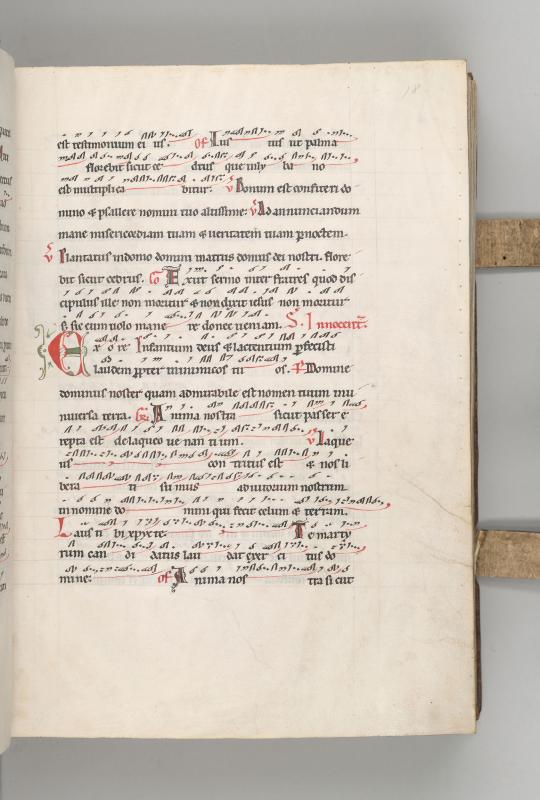 18
est testimonium ei us. Of Ius tus ut palma
florebit sicut ce drus que in ly ba no
est multiplica bitur. V Bonum est confiteri do
mino & psallere nomini tuo altissime. V Ad annunciandum
mane misericordiam tuam & ueritatem tuam p noctem.
V Plantatus in domo domini in atriis domus dei nostri. flore
bit sicut cedrus. Co Exiit sermo inter fratres quod dis
cipulus ille non moritur & non dixit iesus non moritur
s; sic eum uolo mane re donec ueniam. S. Innocent.
Ex o re Infantium deus & lactentium pfecisti
laudem ppter inimicos tu os. P Domine
dominus noster quam admirabile est nomen tuum in u
niuersa terra. Gr. Anima nostra sicut passer e
repta est de laqueo ue nan ti um. V Laque
us con tritus est & nos li
bera ti su mus adiutorium nostrum
in nomine do mini qui fecit celum & terram.
Laus ti bi xpiste. Te marty
rum can di datus lau dat exer ci tus do
mine. Of Anima nos tra sicut